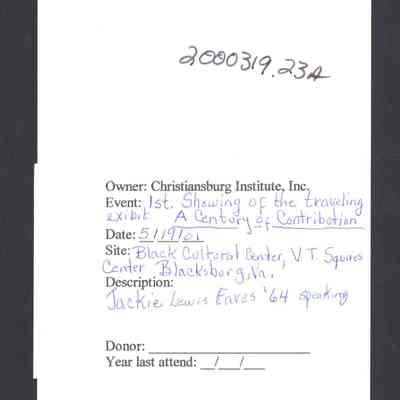 2000319.23A
Owner: Christiansburg Institute, Inc.
Event: 1st. Showing of the traveling
exibit A Century of Contribution
Date: 5/19/01
Site: Black Cultural Center, V.T. Squires
Center, Blacksburg, Va.
Description:
Jackie Lewis Eaves '64 speaking
Donor: ____________________
Year last attend: __/__/___